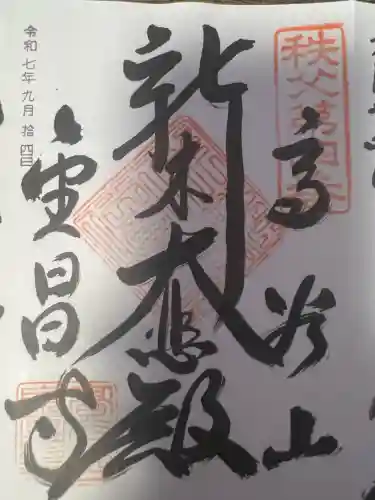 秩父第四番
高谷山
新木大悲殿
金昌寺
令和七年九月拾四日